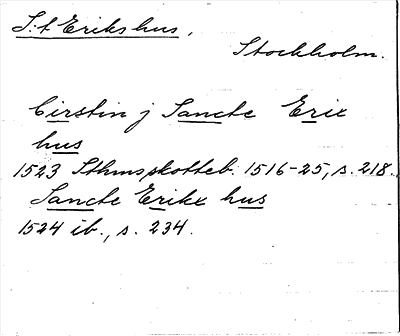 S:t Eriks hus,
Stockholm.
Cirstin j Sancte Erix
hus
1523 Sthms skotteb. 1516-25, s. 218.
Sancte Erikx hus
1524 ib., s. 234.